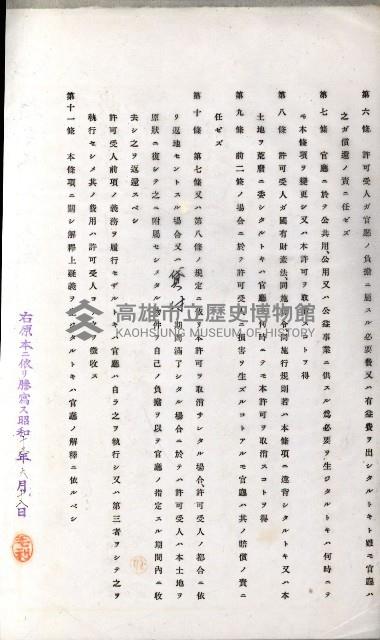 第六條　許可受人ガ官廳ノ負擔ニ屬スル必要費又ハ有益費ヲ出シタルトキト雖モ官廳ハ
之ガ償還ノ責ニ任ゼズ
第七條　官廳ニ於テ公共用、公用又ハ公益事業ニ供スル爲必要ヲ生ジタルトキハ何時ニテ
モ本條項ヲ變更シ又ハ本許可ヲ取消スコトヲ得
第八條　許可受人ガ國有財產法、同施行令、同施行規則若ハ本條項ニ違背シタルトキ又ハ本
土地ヲ荒廢ニ委シタルトキハ官廳ハ何時ニテモ本許可ヲ取消スコトヲ得
第九條　前二條ノ場合ニ於テ許可受人ニ損害ヲ生ズルコトアルモ官廳ハ其ノ賠償ノ責ニ
任ゼズ
第十條　第七條又ハ第八條ノ規定ニ依リ本許可ヲ取消サレタル場合、許可受人ノ都合ニ依
リ返地セントスル場合又ハ貸付期間滿了シタル場合ニ於テハ許可受人ハ本土地ヲ
原狀ニ復シ之ニ附屬セシメタル物件ハ自己ノ負擔ヲ以テ官廳ノ指定スル期間內ニ收
去シ之ヲ返還スベシ
許可受人前項ノ義務ヲ履行セザルトキハ官廳ハ自ラ之ヲ執行シ又ハ第三者ヲシテ之ヲ
執行セシメ其ノ費用ハ許可受人ヨリ徵收ス
第十一條　本條項ニ關シ解釋上疑義ヲ生ジタルトキハ官廳ノ解釋ニ依ルベシ
右原本ニ依リ謄寫ス昭和 年 月 日
高雄市立歷史博物館
KAOHSIUNG MUSEUM OF HISTORY